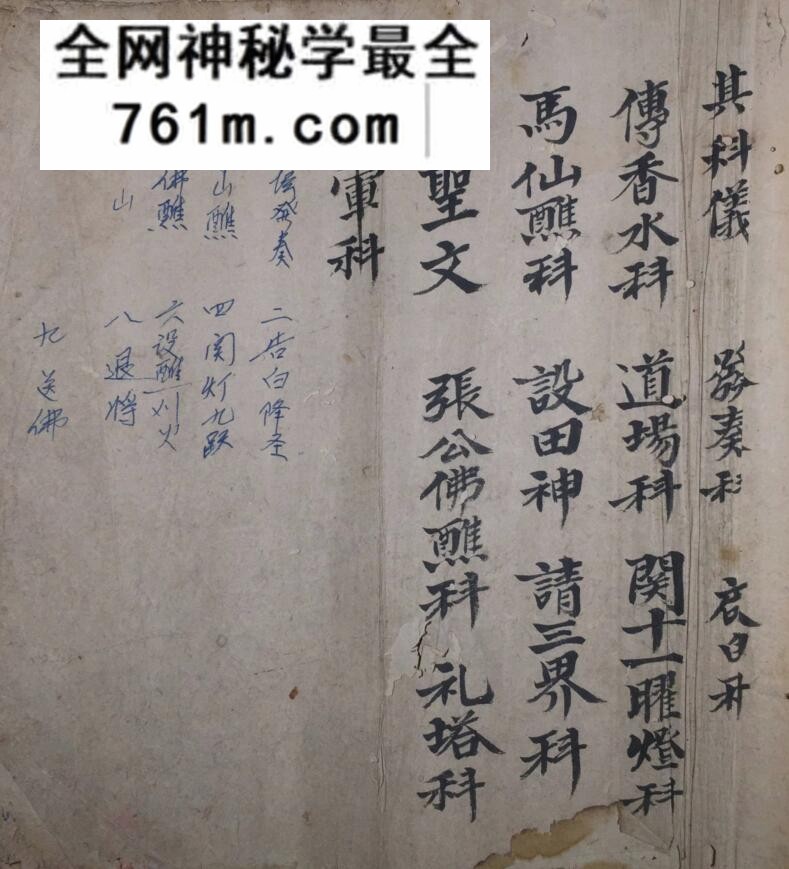 全网神秘学最全
761m.com
其科儀 發奏科
傳香水科 道場科 関十一曜燈科
馬仙醮科 設田神 請三界科
聖文 張公佛醮科 礼塔科
軍科
發奏 二告白降圣
山醮 四関灯九
佛醮 六設醮 刈火
山 八退将
九送佛